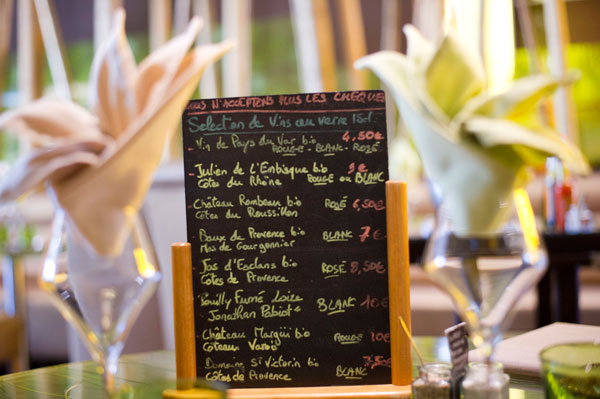 NOUS N'ACCEPTONS PLUS LES CHEQUE
Selection de Vins au verre 15cl.
- Vin de Pays du Var bio 4,50€
ROUGE - BLANC - ROSÉ
- Julien de L'Embisque bio 5€
Côtes du Rhône ROUGE ou BLANC
- Château Rombeau bio ROSÉ 4,50€
Côtes du Roussillon
- Baux de Provence bio BLANC 7€
Mas de Gourgonnier
- Jas d'Esclans bio ROSÉ 8,50€
Côtes de Provence
Pouilly Fumé Loire BLANC 10€
Jonathan Pabiot
Château Margüi bio ROUGE 10€
Côteaux Varois
Domaine St Victorin bio 7,50€
Côtes de Provence BLANC